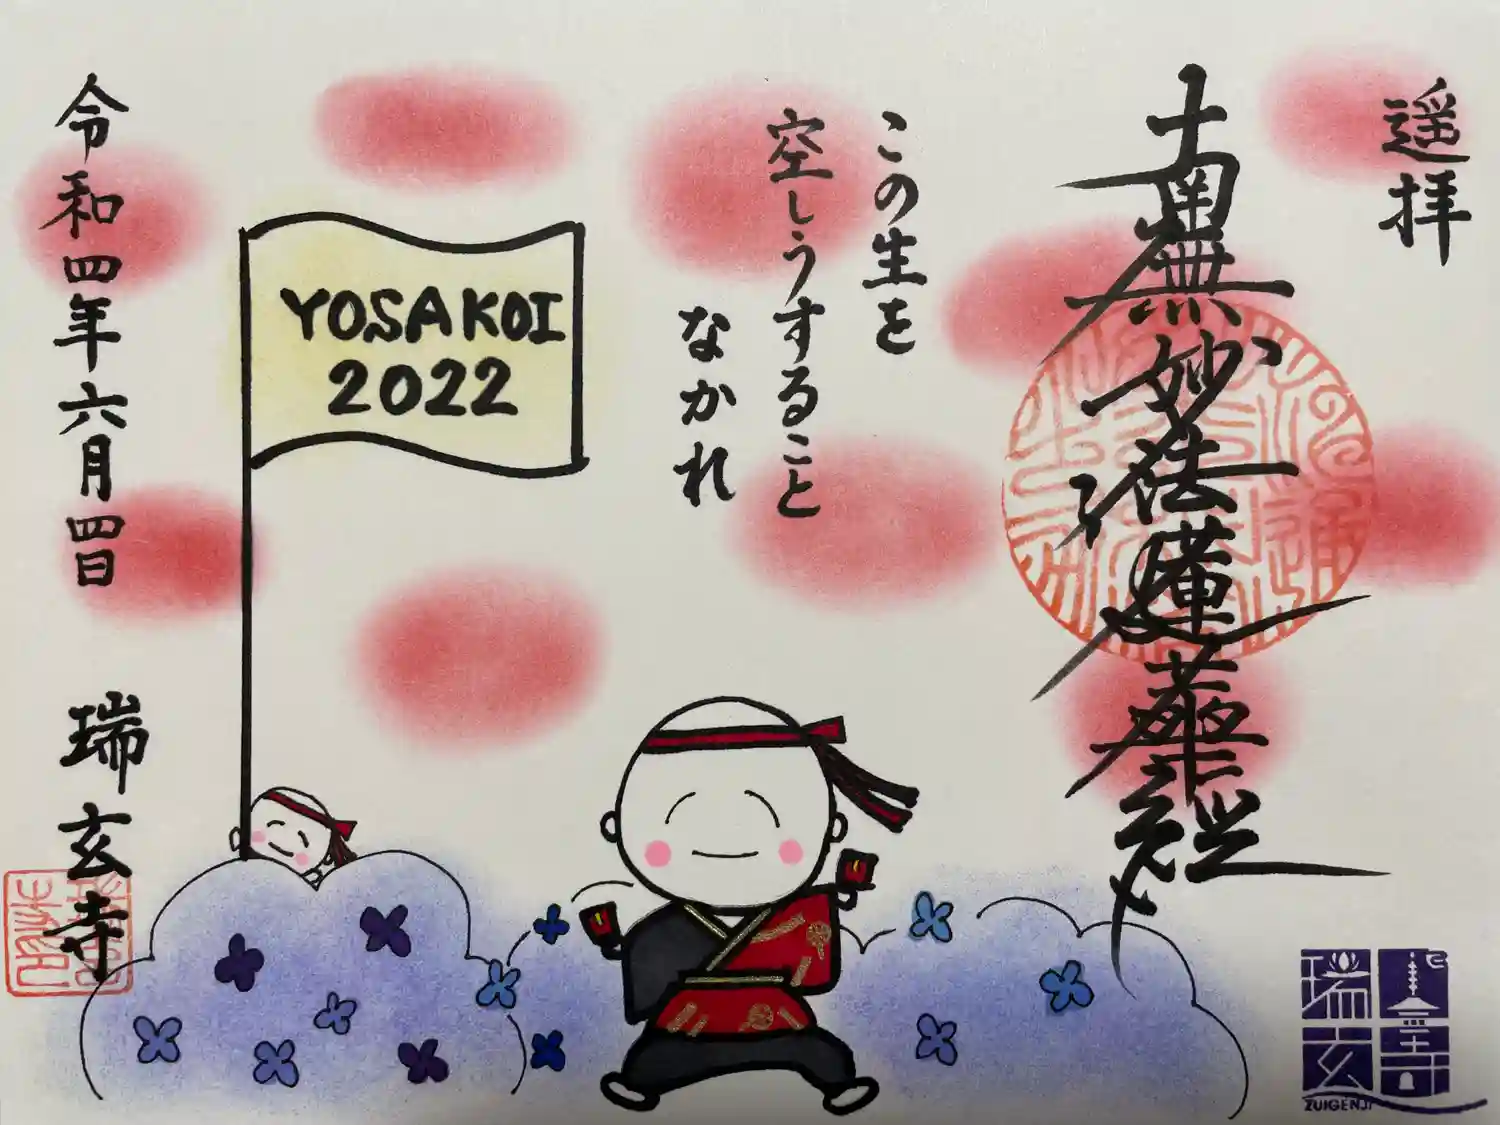 遥拝
南無妙法蓮華経
この生を
空しうすること
なかれ
YOSAKOI
2022
令和四年六月四日
瑞玄寺
瑞玄寺
ZUIGENJI